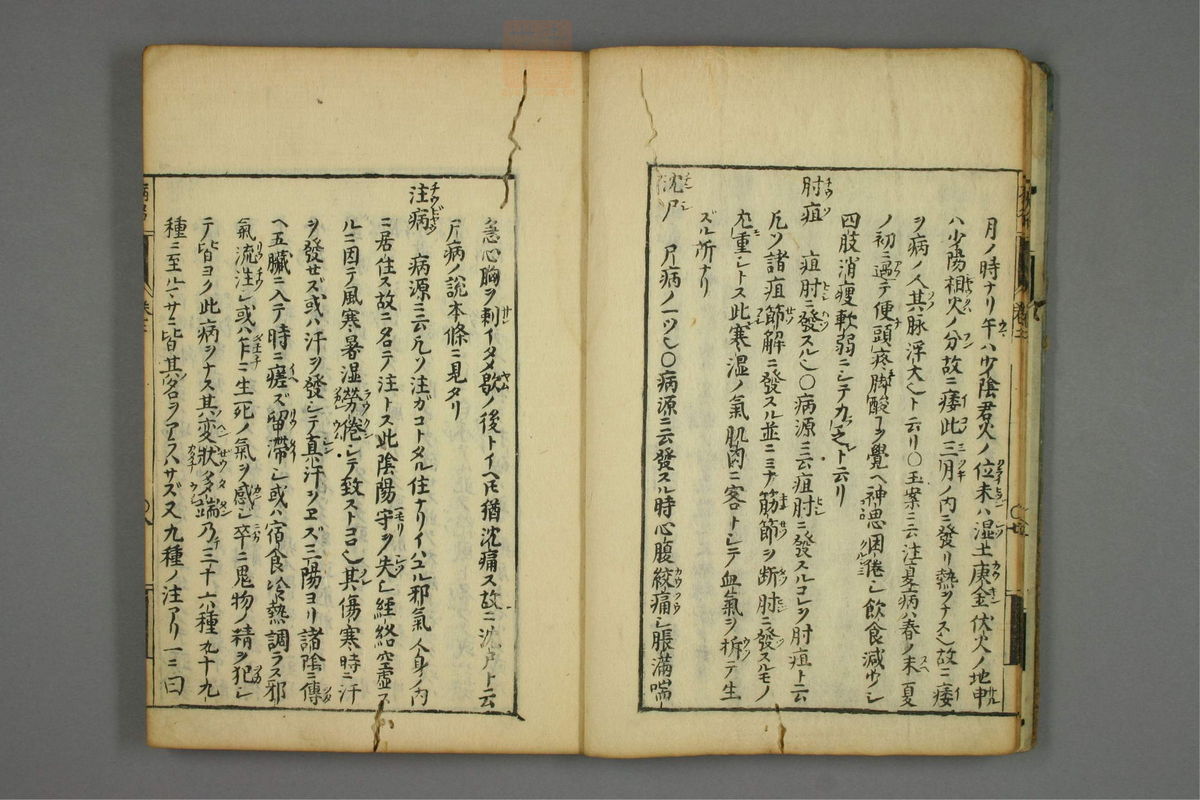 月ノ時ナリ午ハ少陰君火ノ位未ハ湿土庚金伏火ノ地申
ハ少陽相火ノ分故ニ痿此三月ノ内ニ發リ熱ヲナス故ニ痿
ヲ病ノ人其脉浮大ト云リ○玉案ニ云注夏病ハ春ノ末夏
ノ初ニ遇テ便頭疼脚酸ヿヲ覺ヘ神思困倦シ飲食減少シ
四肢消痩軟弱ニシテ力乏ト云リ
肘疽 疽肘ニ發スル也○病源ニ云疽肘ニ發スルコレヲ肘疽ト云
凡ソ諸疽節解ニ發スル並ニミナ筋節ヲ断肘ニ發スルモノ
尤重シトス此寒湿ノ氣肌肉ニ客トシテ血氣ヲ折テ生
ズル所ナリ
沈尸 尸病ノ一ツ也○病源ニ云發スル時心腹絞痛シ脹滿喘
急心胸ヲ刺イタメ歇ノ後トイヘ𪜈猶沈痛ス故ニ沈尸ト云
尸病ノ説本條ニ見タリ
注病 病源ニ云凡ソ注ガコトタル住ナリイハユル邪氣人身ノ内
ニ居住ス故ニ名テ注トス此陰陽守ヲ失シ經絡空虚ス
ルニ因テ風寒暑湿勞倦シテ致ストコロ也其傷寒時ニ汗
ヲ發セズ或ハ汗ヲ發シテ真汗ヲヱズ三陽ヨリ諸陰ニ傳
ヘ五臟ニ入テ時ニ瘥ズ留滯シ或ハ宿食冷熱調ラス邪
氣流注シ或ハ乍ニ生死ノ氣ヲ感シ卒ニ鬼物ノ精ヲ犯シ
テ皆ヨク此病ヲナス其変狀多端乃三十六種九十九
種ニ至ルマサニ皆其名ヲアラハサズ又九種ノ注アリ一ニ曰